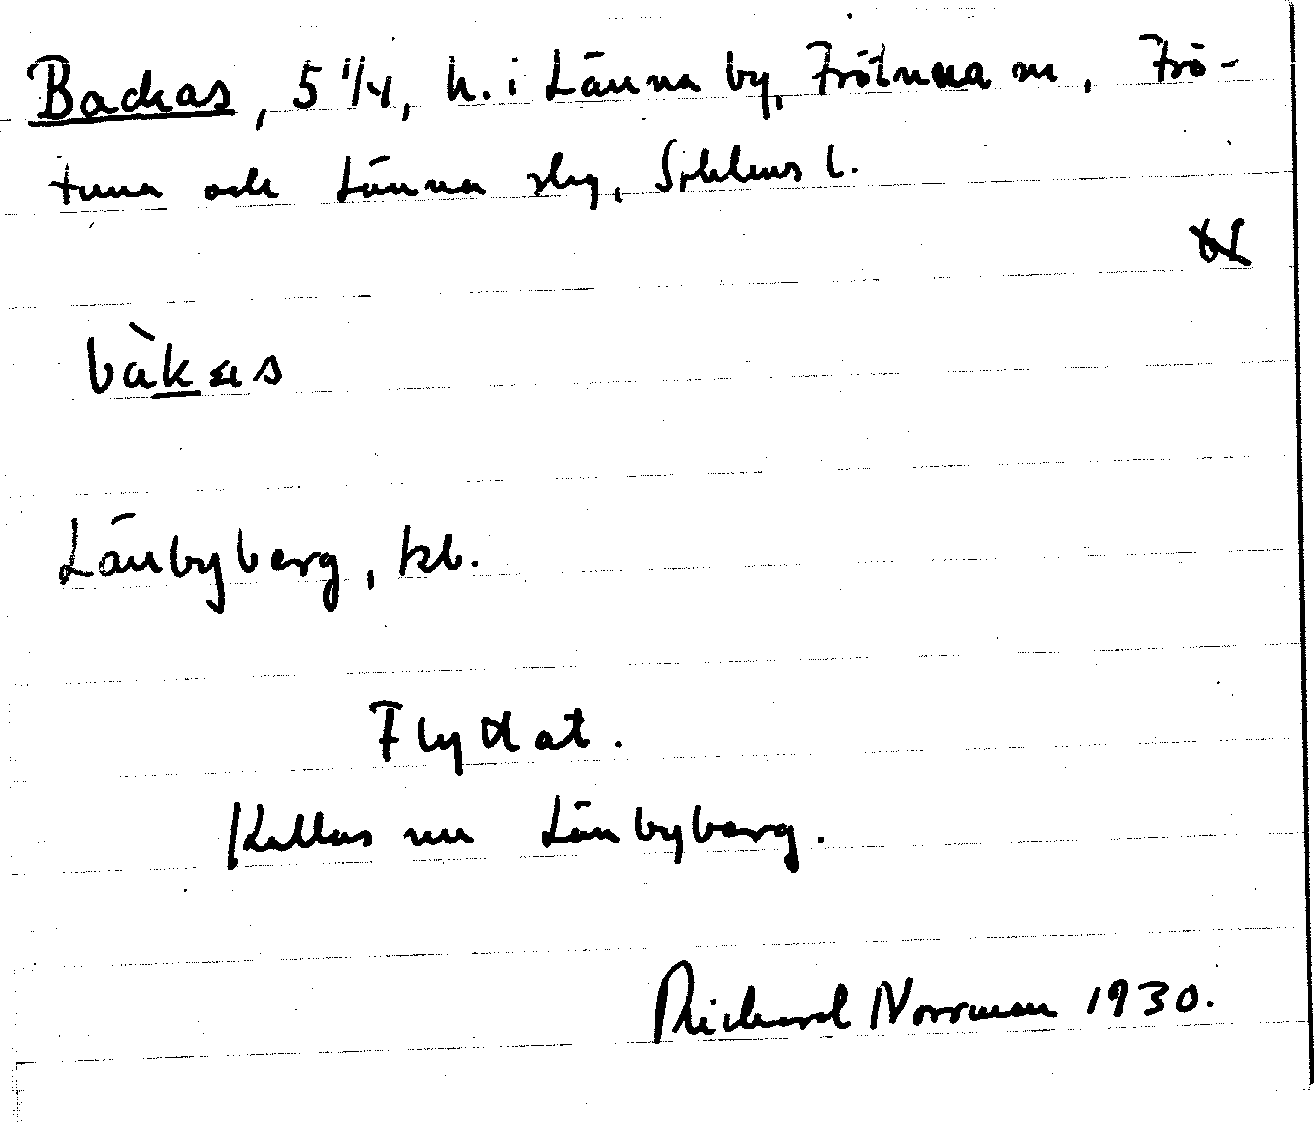 Backas, 5 1/4, h. i Länna by, Frötuna sn, Frö-
tuna och Länna slg, Sthlms l.
bàkas
Länbyberg, kb.
Flyttat.
Kallas nu Länbyberg.
Richard Norrman 1930.